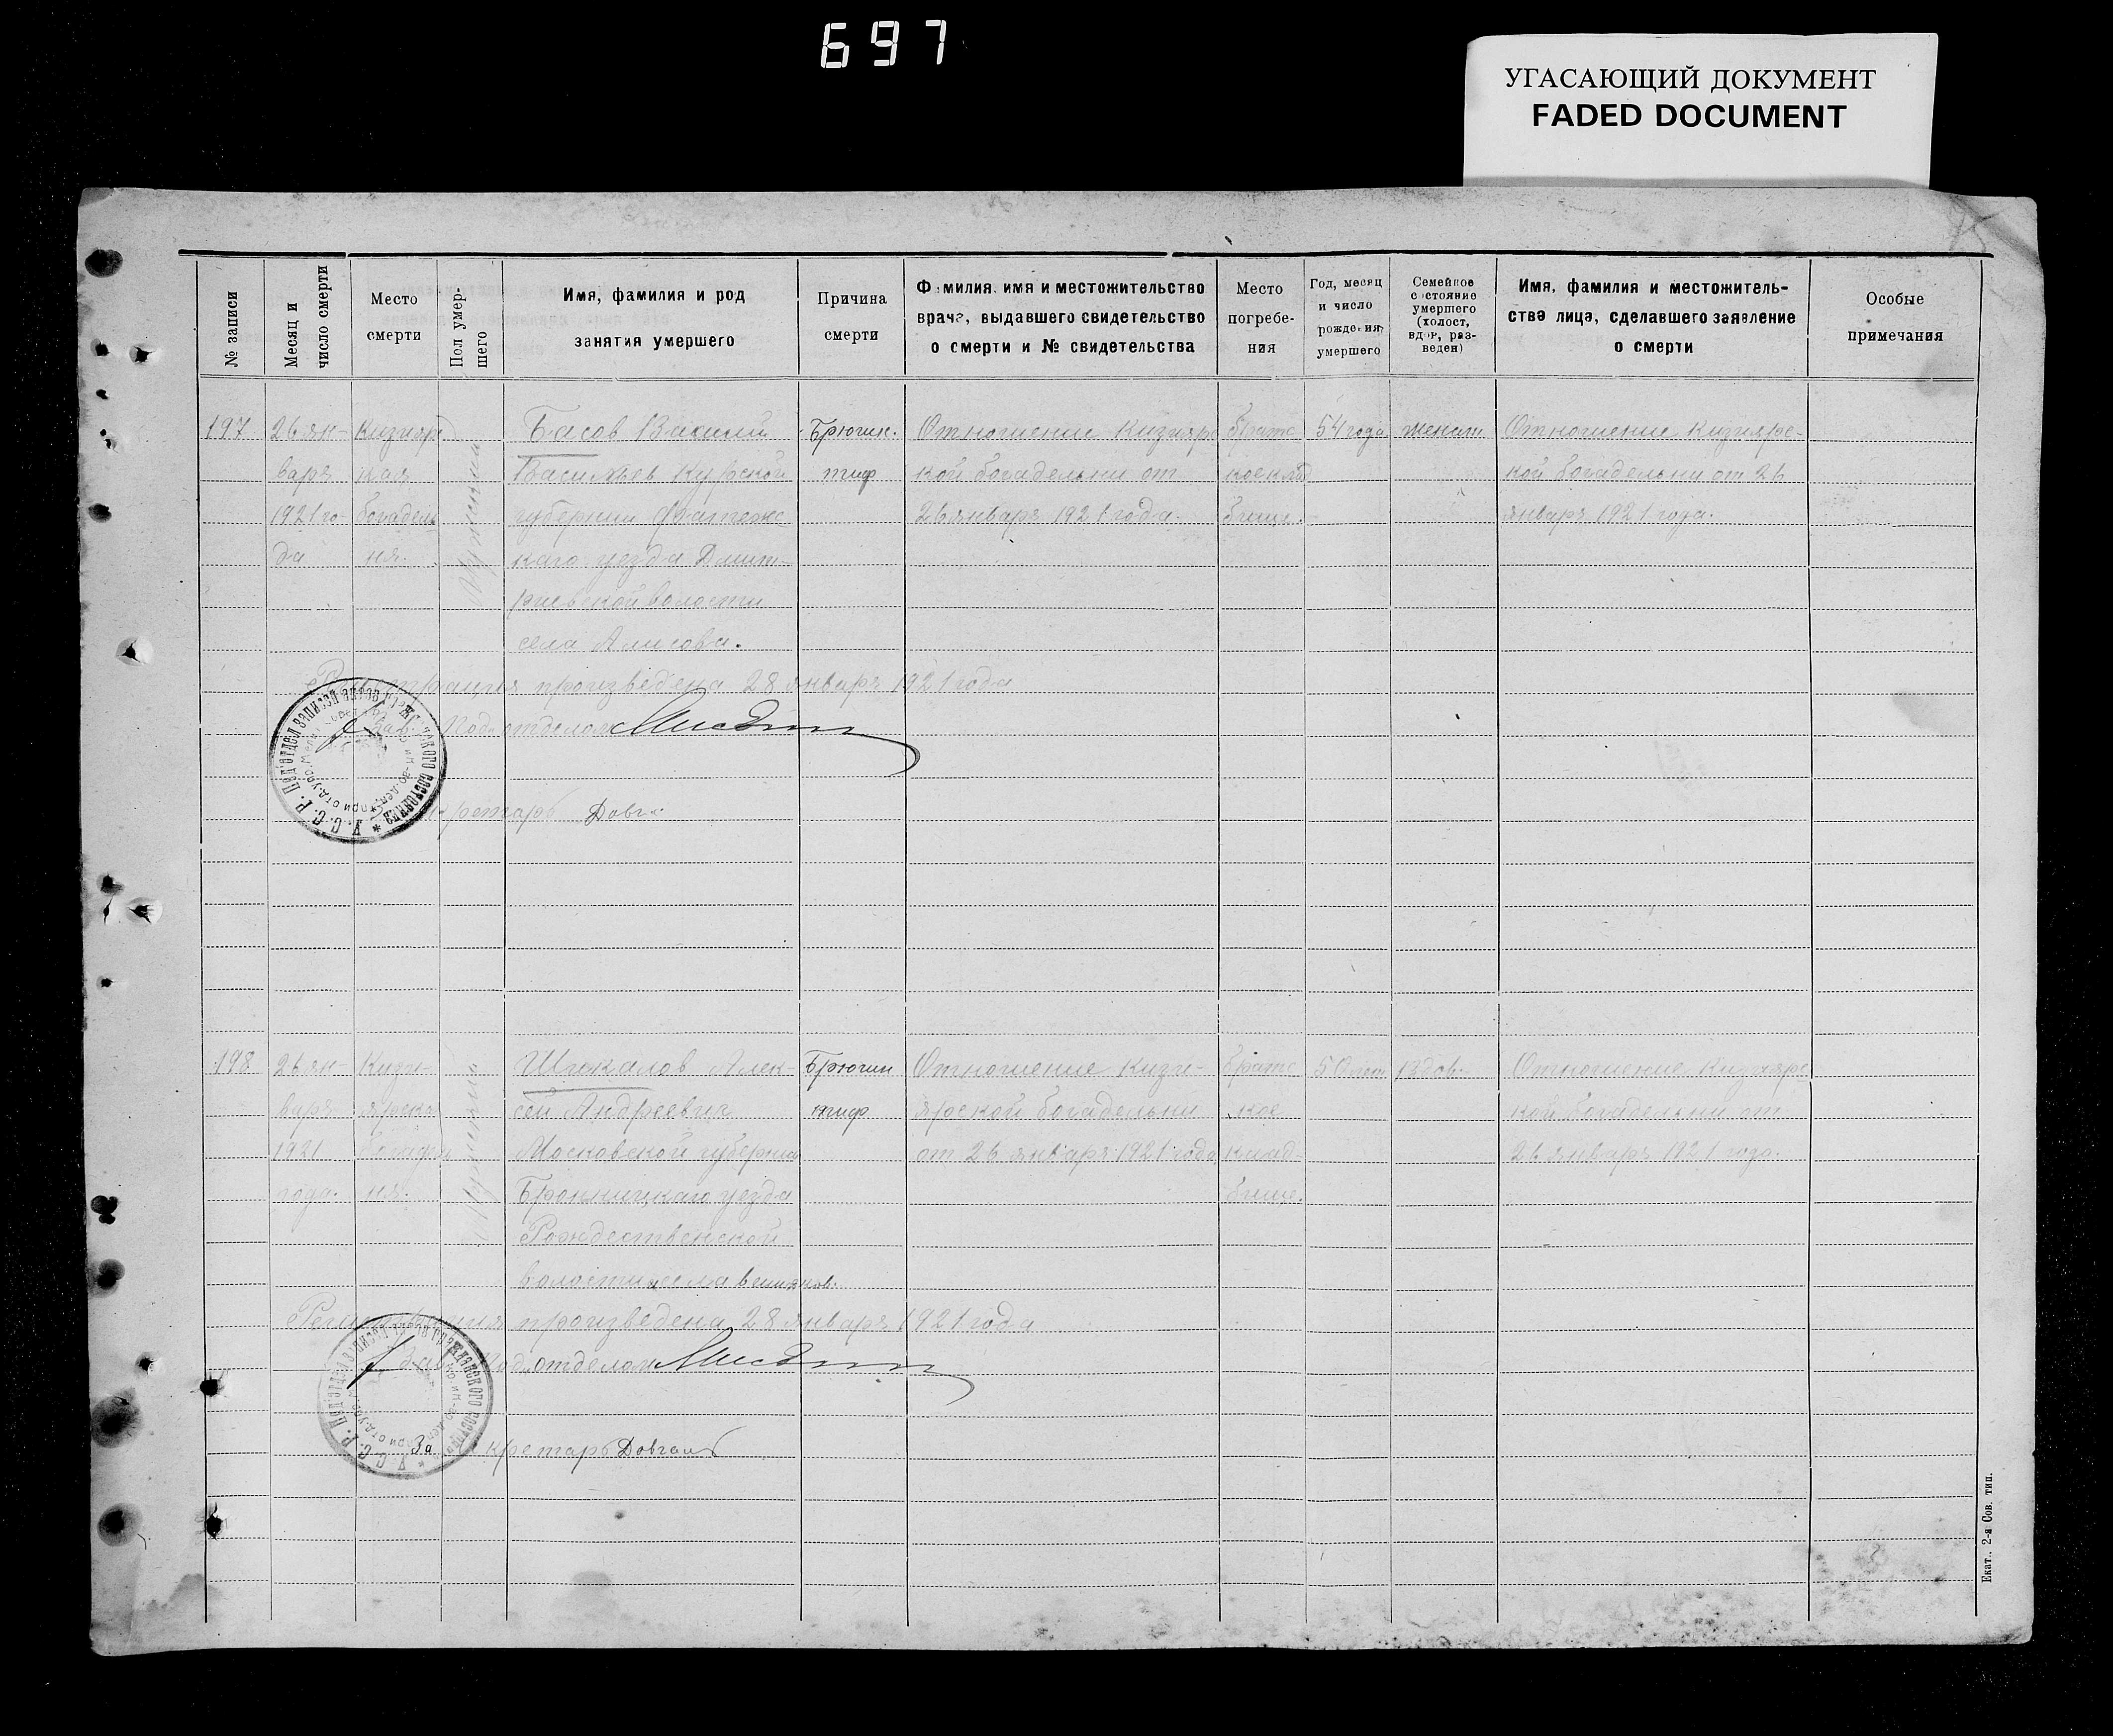 697
УГАСАЮЩИЙ ДОКУМЕНТ
FADED DOCUMENT
№ записи
Месяц и
число смерти
Место
смерти
Пол умер-
шего
Имя, фамилия и род
занятия умершего
Причина
смерти
Фамилия, имя и местожительство
врача, выдавшего свидетельство
о смерти и № свидетельства
Место
погребе-
ния
Год, месяц
и число
рождения
умершего
Семейное
состояние
умершего
(холост,
вдов, раз-
веден)
Имя, фамилия и местожитель-
ства лица, сделавшего заявление
о смерти
Особые
примечания
197
26 ян-
варя
1921 го-
да
Кизияр
ская
богадель
ня.
Мужской
Басов
Васильев Курской
губернии Фатежс
каго уезда Дмит-
риевской волости
села Алисова.
Брюшн.
тиф
Отношение Кизиярс
кой богадельни от
26 января 1921 года.
Братс
кое клад
бище.
54 года
женат
Отношение Кизиярс-
кой богадельни от 26
января 1921 года.
Регистрация произведена 28 января 1921 года
Зав. Подотделом
Секретарь
198
26 ян-
варя
1921
года.
Кизи-
ярская
ня.
Мужской
Алек-
сей Андреевич
Московской губернии
Бронницкаго уезда
Рождественской
волости села
Брюшн
тиф
Отношение Кизи-
ярской богадельни
от 26 января 1921 года
Братс
кое
клад-
бище.
50 лет
Вдов.
Отношение Кизиярс
кой богадельни от
26 января 1921 года.
Регистрация произведена 28 января 1921 года
Зав. Подотделом
За Секретарь Довгаль
У.С.С.Р. Подотдел записей актов гражданского состояния
Екат., 2-я Сов. тип.